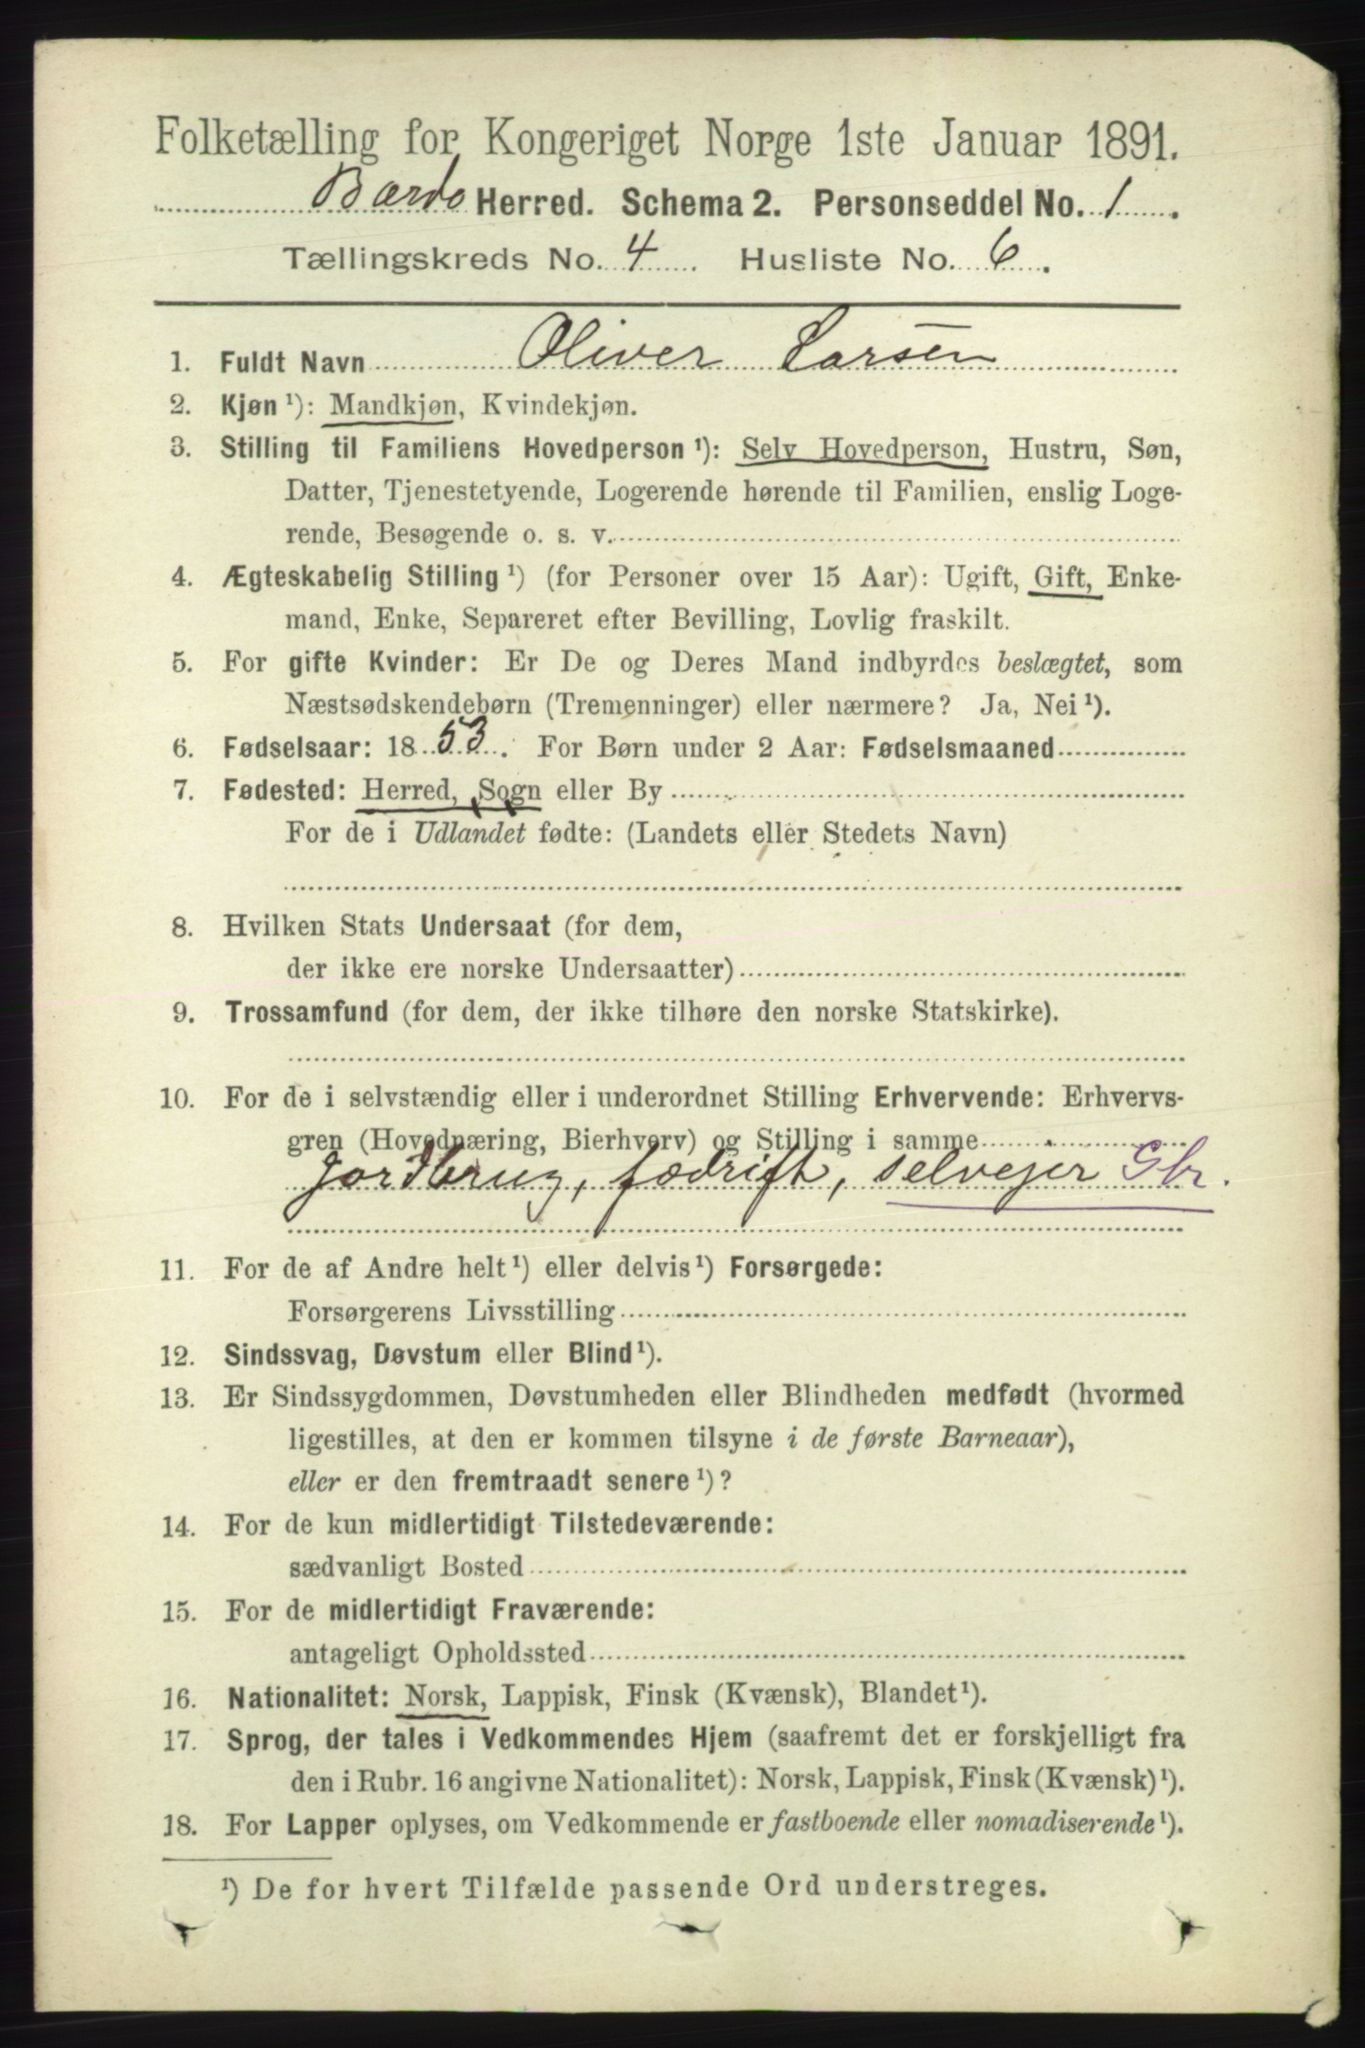 Folketælling for Kongeriget Norge 1ste Januar 1891.
Bardo Herred. Schema 2. Personseddel No. 1.
Tællingskreds No. 4 Husliste No. 6.
1. Fuldt Navn Oliver Larsen
2. Kjøn ¹): Mandkjøn, Kvindekjøn.
3. Stilling til Familiens Hovedperson ¹): Selv Hovedperson, Hustru, Søn,
Datter, Tjenestetyende, Logerende hørende til Familien, enslig Loge-
rende, Besøgende o. s. v.
4. Ægteskabelig Stilling ¹) (for Personer over 15 Aar): Ugift, Gift, Enke-
mand, Enke, Separeret efter Bevilling, Lovlig fraskilt.
5. For gifte Kvinder: Er De og Deres Mand indbyrdes beslægtet, som
Næstsødskendebørn (Tremenninger) eller nærmere? Ja, Nei ¹).
6. Fødselsaar: 1853. For Børn under 2 Aar: Fødselsmaaned
7. Fødested: Herred, Sogn eller By
For de i Udlandet fødte: (Landets eller Stedets Navn)
8. Hvilken Stats Undersaat (for dem,
der ikke ere norske Undersaatter)
9. Trossamfund (for dem, der ikke tilhøre den norske Statskirke).
10. For de i selvstændig eller i underordnet Stilling Erhvervende: Erhvervs-
gren (Hovednæring, Bierhverv) og Stilling i samme
Jordbrug, fædrift, selvejer Gbr.
11. For de af Andre helt ¹) eller delvis ¹) Forsørgede:
Forsørgerens Livsstilling
12. Sindssvag, Døvstum eller Blind ¹).
13. Er Sindssygdommen, Døvstumheden eller Blindheden medfødt (hvormed
ligestilles, at den er kommen tilsyne i de første Barneaar),
eller er den fremtraadt senere ¹)?
14. For de kun midlertidigt Tilstedeværende:
sædvanligt Bosted
15. For de midlertidigt Fraværende:
antageligt Opholdssted
16. Nationalitet: Norsk, Lappisk, Finsk (Kvænsk), Blandet ¹).
17. Sprog, der tales i Vedkommendes Hjem (saafremt det er forskjelligt fra
den i Rubr. 16 angivne Nationalitet): Norsk, Lappisk, Finsk (Kvænsk) ¹).
18. For Lapper oplyses, om Vedkommende er fastboende eller nomadiserende ¹).
¹) De for hvert Tilfælde passende Ord understreges.